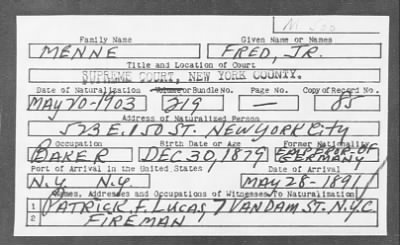 Family Name Given Name or Names
MENNE FRED, JR.
Title and Location of Court
SUPREME COURT, NEW YORK COUNTY.
Date of Naturalization Volume or Bundle No. Page No. Copy of Record No.
MAY 20-1903 219 — 85
Address of Naturalized Person
523 E. 150 ST. NEW YORK CITY
Occupation Birth Date or Age Former Nationality
BAKER DEC. 30, 1879 EMPEROR OF GERMANY
Port of Arrival in the United States Date of Arrival
N.Y. N.Y. MAY 28-1891
Names, Addresses and Occupations of Witnesses To Naturalization
1 PATRICK F. LUCAS, 7 VANDAM ST. N.Y.C.
2 FIREMAN